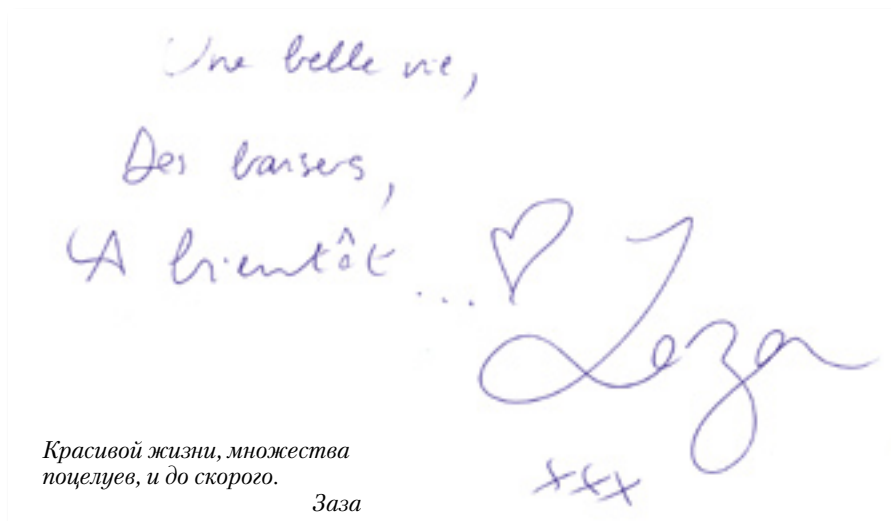 Une belle vie,
Des baisers,
A bientôt ...
Zaza
xxx
Красивой жизни, множества
поцелуев, и до скорого.
Заза